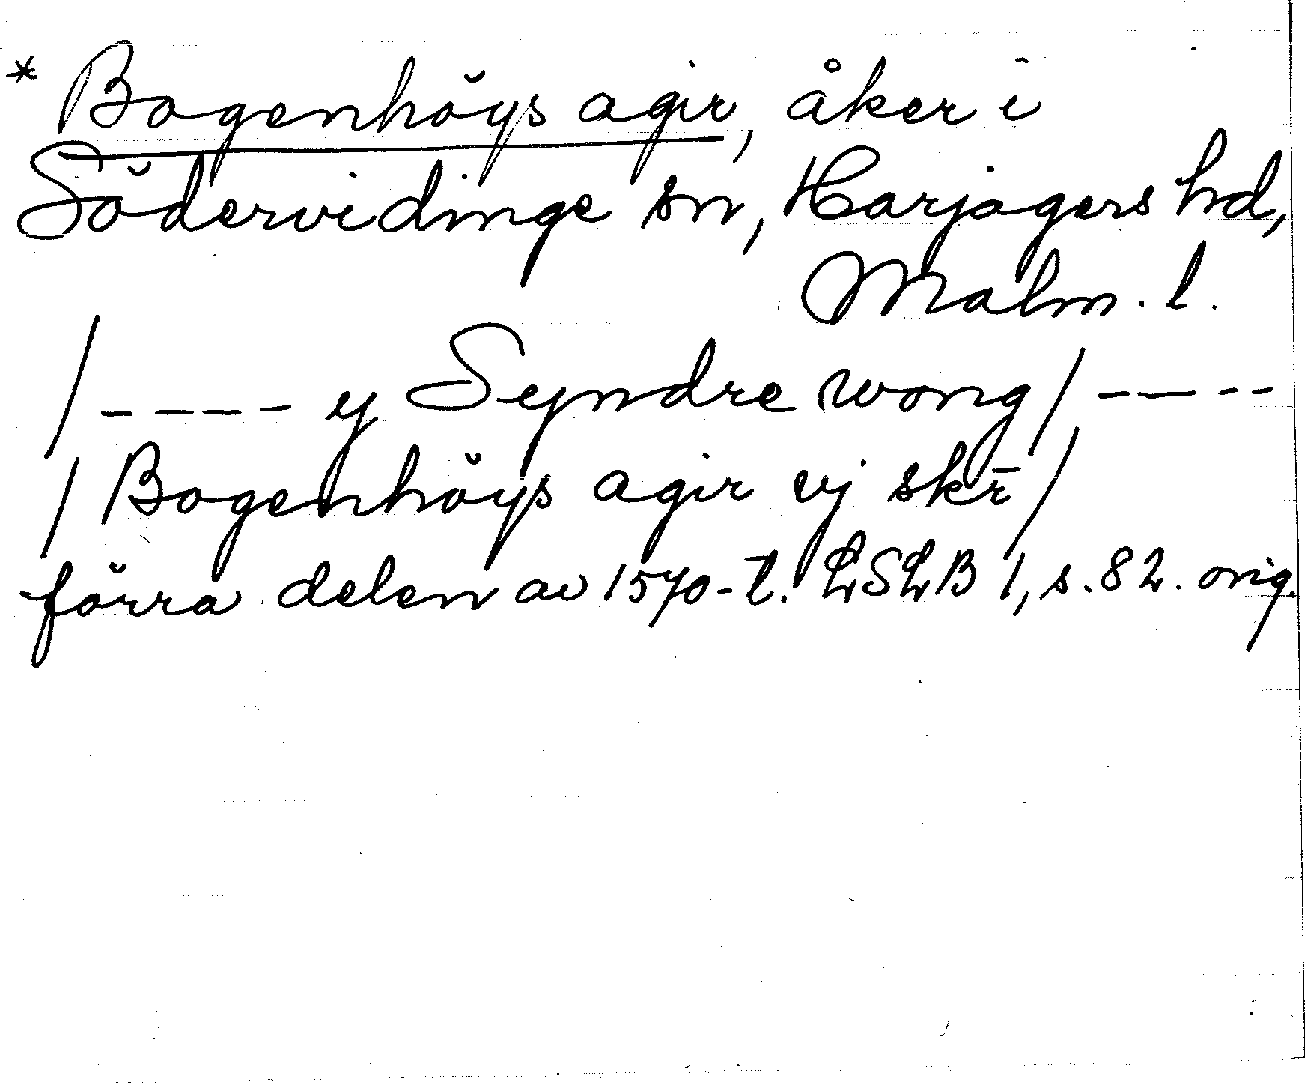 * Bogenhöys agir, åker i
Södervidinge sn, Harjagers hd,
Malm. l.
/---- y Syndre wong/----
/Bogenhöys agir vj skr̄/
förra delen av 1570-t. LSLB 1, s. 82. orig.